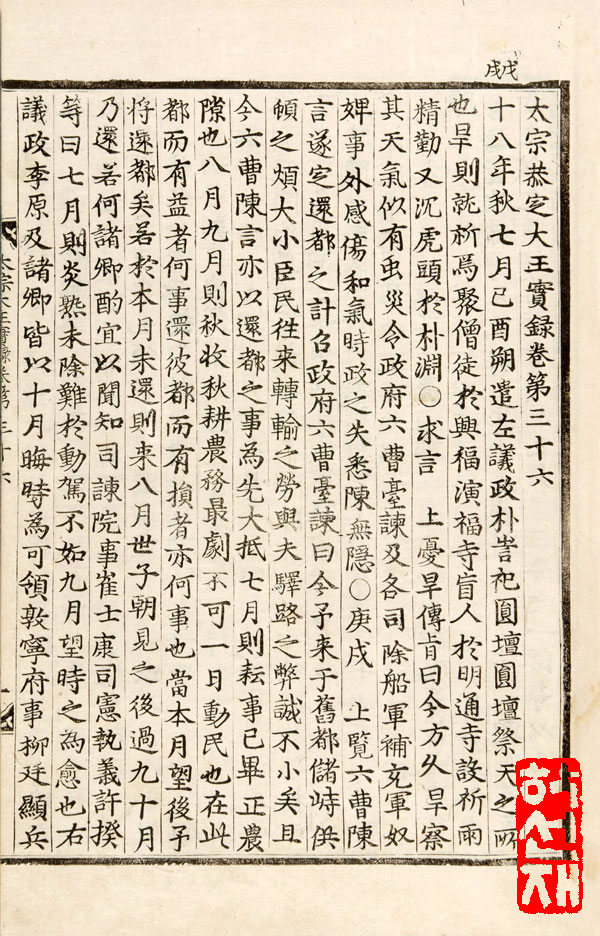 戊戌
太宗恭定大王實錄卷第三十六
十八年秋七月己酉朔遣左議政朴訔祀圓壇圓壇祭天之所
也旱則就祈焉聚僧徒於興福演福寺盲人於明通寺設祈雨
精勤又沉虎頭於朴淵○求言 上憂旱傳旨曰今方久旱察
其天氣似有虫災令政府六曹臺諫及各司除船軍補充軍奴
婢事外感傷和氣時政之失悉陳無隱○庚戌 上覽六曹陳
言遂定還都之計召政府六曹臺諫曰今予来于舊都儲峙供
頓之煩大小臣民往来轉輸之勞與夫驛路之弊誠不小矣且
今六曹陳言亦以還都之事為先大抵七月則耘事已畢正農
隙也八月九月則秋收秋耕農務最劇不可一日動民也在此
都而有益者何事還彼都而有損者亦何事也當本月望後予
将還都矣若於本月未還則来八月世子朝見之後過九十月
乃還若何諸卿酌宜以聞知司諫院事崔士康司憲執義許揆
等曰七月則炎熱未除難於動駕不如九月望時之為愈也右
議政李原及諸卿皆以十月晦時為可領敦寧府事柳廷顯兵
太宗大王實錄卷第三十六
一
허선재